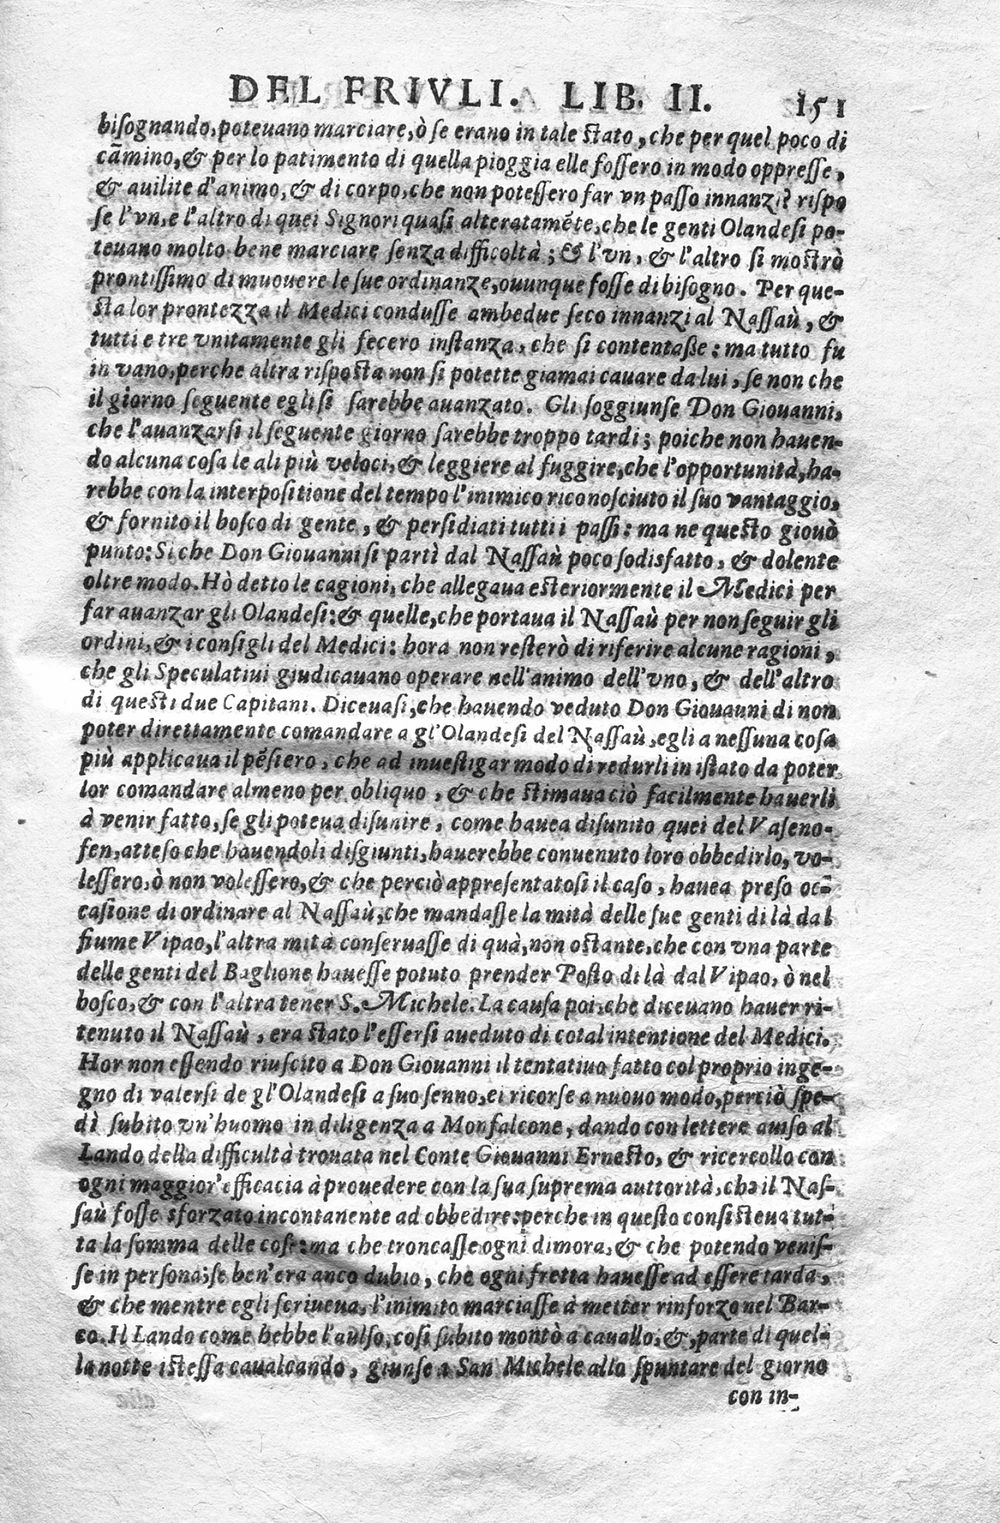 DEL FRIVLI. LIB. II. 151
bisognando, poteuano marciare, ò se erano in tale stato, che per quel poco di
cãmino, & per lo patimento di quella pioggia elle fossero in modo oppresse,
& auilite d'animo, & di corpo, che non potessero far vn passo innanzi? rispo
se l'vn, e l'altro di quei Signori quasi alteratamẽte, che le genti Olandesi po-
teuano molto bene marciare senza difficoltà; & l'vn, & l'altro si mostrò
prontissimo di muouere le sue ordinanze, ouunque fosse di bisogno. Per que-
sta lor prontezza il Medici condusse ambedue seco innanzi al Nassaù, &
tutti e tre vnitamente gli fecero instanza, che si contentasse: ma tutto fu
in vano, perche altra risposta non si potette giamai cauare da lui, se non che
il giorno seguente egli si sarebbe auanzato. Gli soggiunse Don Giouanni,
che l'auanzarsi il seguente giorno sarebbe troppo tardi; poiche non hauen-
do alcuna cosa le ali più veloci, & leggiere al fuggire, che l'opportunità, ha-
rebbe con la interpositione del tempo l'inimico riconosciuto il suo vantaggio,
& fornito il bosco di gente, & persidiati tutti i passi: ma ne questo giouò
punto: Si che Don Giouanni si partì dal Nassaù poco sodisfatto, & dolente
oltre modo. Hò detto le cagioni, che allegaua esteriormente il Medici per
far auanzar gli Olandesi: & quelle, che portaua il Nassaù per non seguir gli
ordini, & i consigli del Medici: hora non resterò di riferire alcune ragioni,
che gli Speculatiui giudicauano operare nell'animo dell'vno, & dell'altro
di questi due Capitani. Diceuasi, che hauendo veduto Don Giouanni di non
poter direttamente comandare a gl'Olandesi del Nassaù, egli a nessuna cosa
più applicaua il pẽsiero, che ad inuestigar modo di redurli in istato da poter
lor comandare almeno per obliquo, & che stimaua ciò facilmente hauerli
à venir fatto, se gli poteua disunire, come hauea disunito quei del Vaseno-
fen, atteso che hauendoli disgiunti, hauerebbe conuenuto loro obbedirlo, vo-
lessero, ò non volessero, & che perciò appresentatosi il caso, hauea preso oc-
casione di ordinare al Nassaù, che mandasse la mità delle sue genti di là dal
fiume Vipao, l'altra mità conseruasse di quà, non ostante, che con vna parte
delle genti del Baglione hauesse potuto prender Posto di là dal Vipao, ò nel
bosco, & con l'altra tener S. Michele. La causa poi, che diceuano hauer ri-
tenuto il Nassaù, era stato l'essersi aueduto di cotal intentione del Medici.
Hor non essendo riuscito a Don Giouanni il tentatiuo fatto col proprio inge-
gno di valersi de gl'Olandesi a suo senno, ei ricorse a nuouo modo, perciò spe-
dì subito vn'huomo in diligenza a Monfalcone, dando con lettere auiso al
Lando della difficultà trouata nel Conte Giouanni Ernesto, & ricercollo con
ogni maggior'efficacia à prouedere con la sua suprema auttorità, che il Nas-
saù fosse sforzato incontanente ad obbedire: perche in questo consisteua tut-
ta la somma delle cose: ma che troncasse ogni dimora, & che potendo venis-
se in persona; se ben'era anco dubio, che ogni fretta hauesse ad essere tarda,
& che mentre egli scriueua, l'inimito marciasse à metter rinforzo nel Bar-
co. Il Lando come hebbe l'auiso, così subito montò a cauallo, &, parte di quel-
la notte istessa caualcando, giunse a San Michele allo spuntare del giorno
con in-